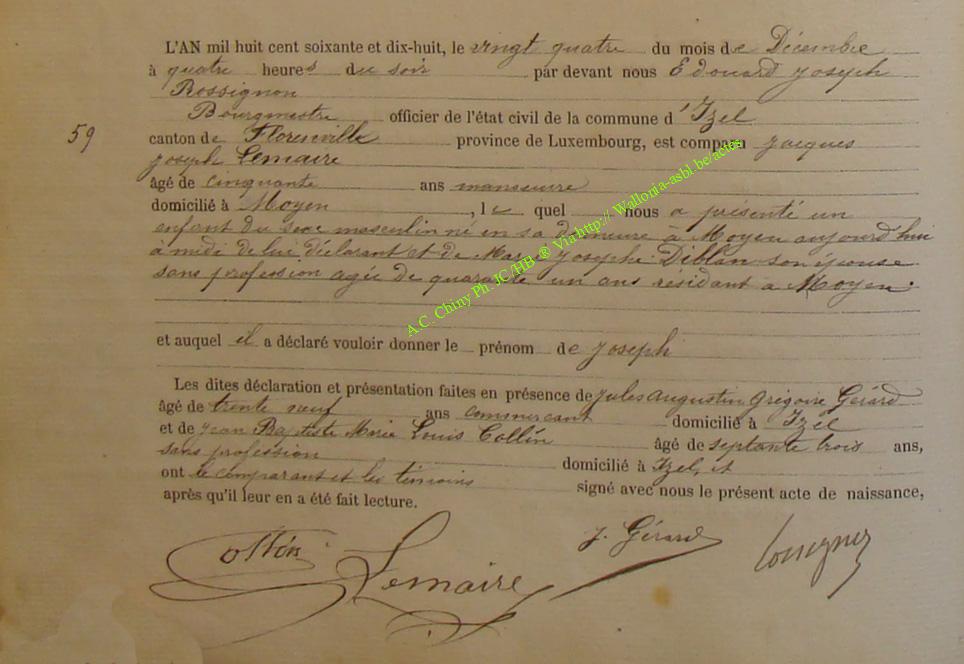 L'AN mil huit cent soixante et dix-huit, le vingt quatre du mois de Décembre
à quatre heures du soir par devant nous Edouard Joseph
Rossignon
Bourgmestre officier de l'état civil de la commune d'Izel
59
canton de Florenville province de Luxembourg, est comparu Jacques
Joseph Lemaire
âgé de cinquante ans manœuvre
domicilié à Moyen, le quel nous a présenté un
enfant du sexe masculin né en sa demeure à Moyen aujourd'hui
à midi de lui déclarant et de Marie Josephe Deblan son épouse
sans profession agée de quarante un ans résidant à Moyen
et auquel il a déclaré vouloir donner le prénom de Joseph
Les dites déclaration et présentation faites en présence de Jules Augustin Grégoire Gérard
âgé de trente neuf ans commerçant domicilié à Izel
et de Jean Baptiste Marie Louis Collin âgé de septante trois ans,
sans profession domicilié à Izel, et
ont le comparant et les témoins signé avec nous le présent acte de naissance,
après qu'il leur en a été fait lecture.
Collin Lemaire J. Gérard
A.C. Chiny Ph. JC/HB @ Via http:// Wallonia-asbl.be/actes